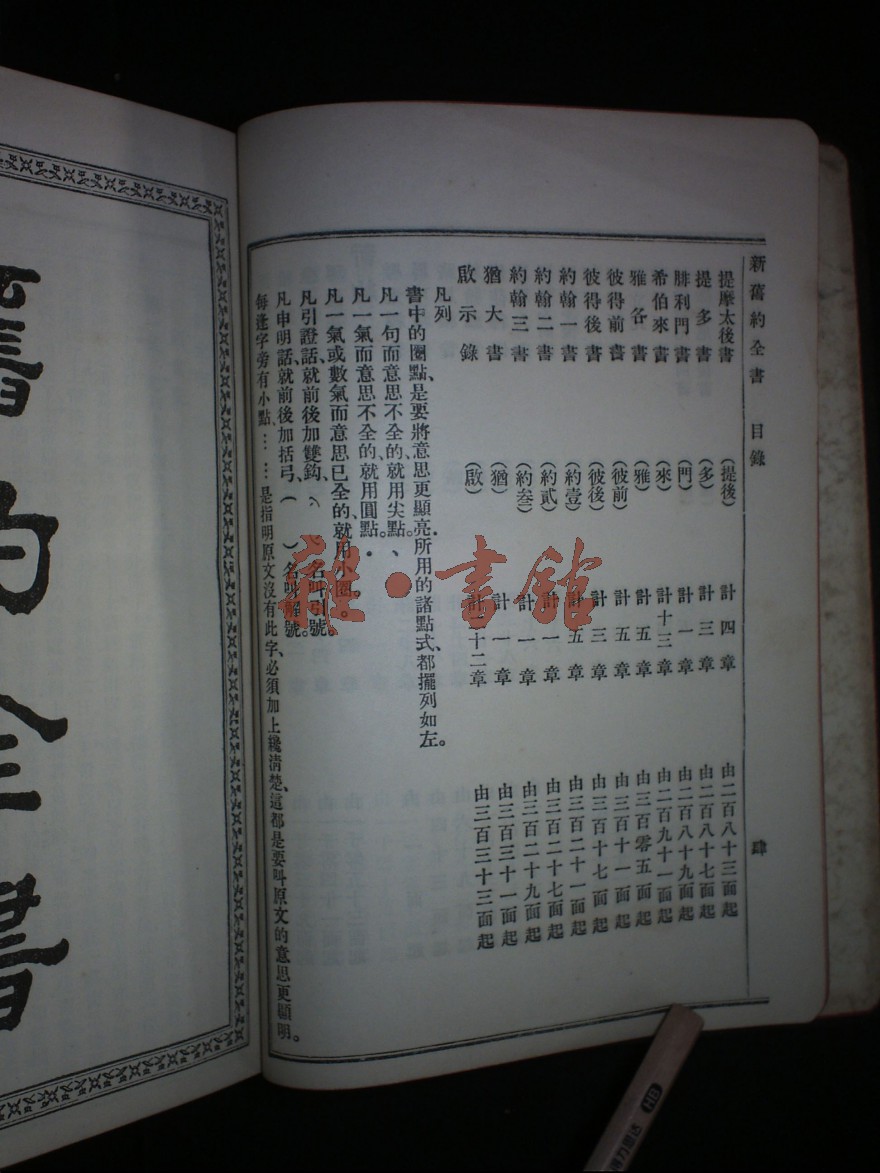 新舊約全書 目錄 肆
提摩太後書 (提後) 計四章 由二百八十三面起
提多書 (多) 計三章 由二百八十七面起
腓利門書 (門) 計一章 由二百八十九面起
希伯來書 (來) 計十三章 由二百九十一面起
雅各書 (雅) 計五章 由三百零五面起
彼得前書 (彼前) 計五章 由三百十一面起
彼得後書 (彼後) 計三章 由三百十七面起
約翰一書 (約壹) 計五章 由三百二十一面起
約翰二書 (約貳) 計一章 由三百二十七面起
約翰三書 (約叁) 計一章 由三百二十九面起
猶大書 (猶) 計一章 由三百三十一面起
啟示錄 (啟) 計二十二章 由三百三十三面起
凡列
書中的圈點、是要將意思更顯亮.所用的諸點式、都擺列如左。
凡一句而意思不全的、就用尖點。、
凡一氣而意思不全的、就用圓點。.
凡一氣或數氣而意思已全的、就用小圈。。
凡引證話、就前後加雙鈎、名叫引號。
凡申明話、就前後加括弓、( )名叫解號。
每逢字旁有小點、……是指明原文沒有此字、必須加上纔清楚、這都是要叫原文的意思更顯明。
舊約全書
雜·書館
HB